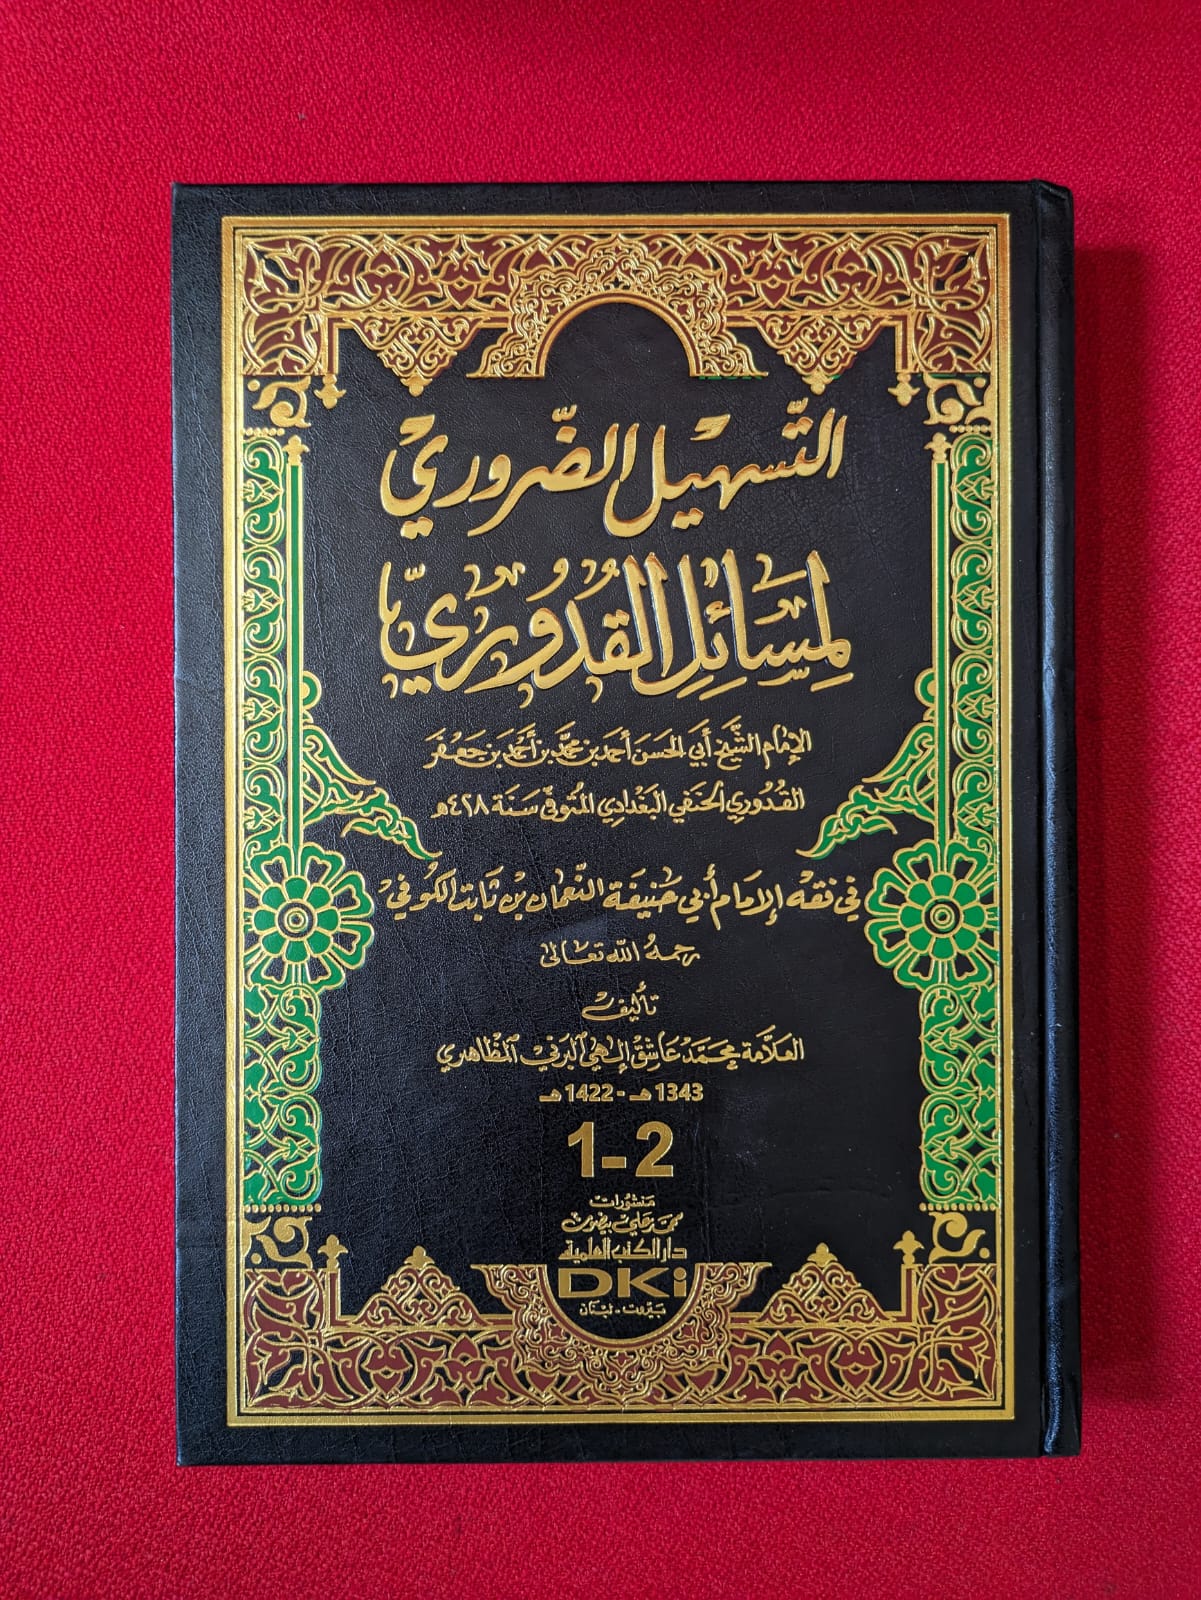 التّسهيل الضّروري
لِمسَائِل القُدُوريّ
الإمام الشَّيخ أبي الحسَن أحمد بن محمَّد بن أحمَد بن جَعفَر
القُدُوري الحنَفي البَغْدادي المتُوفّى سَنَة ٤٢٨هـ
في فقه الإمَام أبي حَنيفَة النّعمان بن ثابت الكوُفي
رحمهُ اللّه تعَالى
تأليف
العلاَّمة محمَّد عَاشِق إلهي البرني المظاهري
1343 هـ - 1422 هـ
1-2
مَنشورَات
محمد علي بيضون
دار الكتب العلمية
DKi
بَيروت - لبنَان